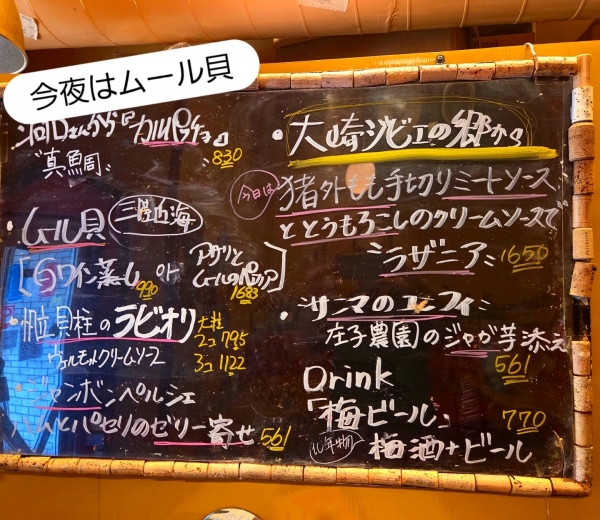 今夜はムール貝
から『カルパチョ』
"真鯛" 830
ムール貝 三陸近海
[白ワイン蒸し 990 or アサリとムールのパエリア 1683]
・帆立貝柱のラビオリ 大粒
2コ 795
ヴェルモットクリームソース 3コ 1122
・ジャンボンペルシェ
ハムとパセリのゼリー寄せ 561
・大崎ジビエの郷から
今日は 猪外もも手切りミートソース
ととうもろこしのクリームソースで
"ラザニア" 1650
・サンマのコンフィ"
庄子農園のジャガ芋添え
561
Drink
「梅ビール」 770
10年物 梅酒+ビール